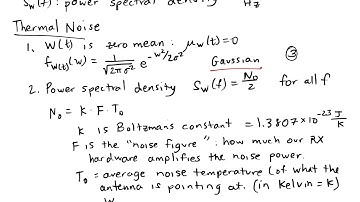 S_W(f): power spectral density Hz
Thermal Noise
1. W(t) is zero mean: μ_W(t)=0
f_W(t)(w) = 1/√(2πσ²) e^(-w²/2σ²) Gaussian ③
2. Power spectral density S_W(f) = N₀/2 for all f
N₀ = K · F · T₀
K is Boltzmans constant = 1.3807 × 10^-23 J/K
F is the "noise figure": how much our RX
hardware amplifies the noise power.
T₀ = average noise temperature (of what the
antenna is pointing at. (in Kelvin = K)